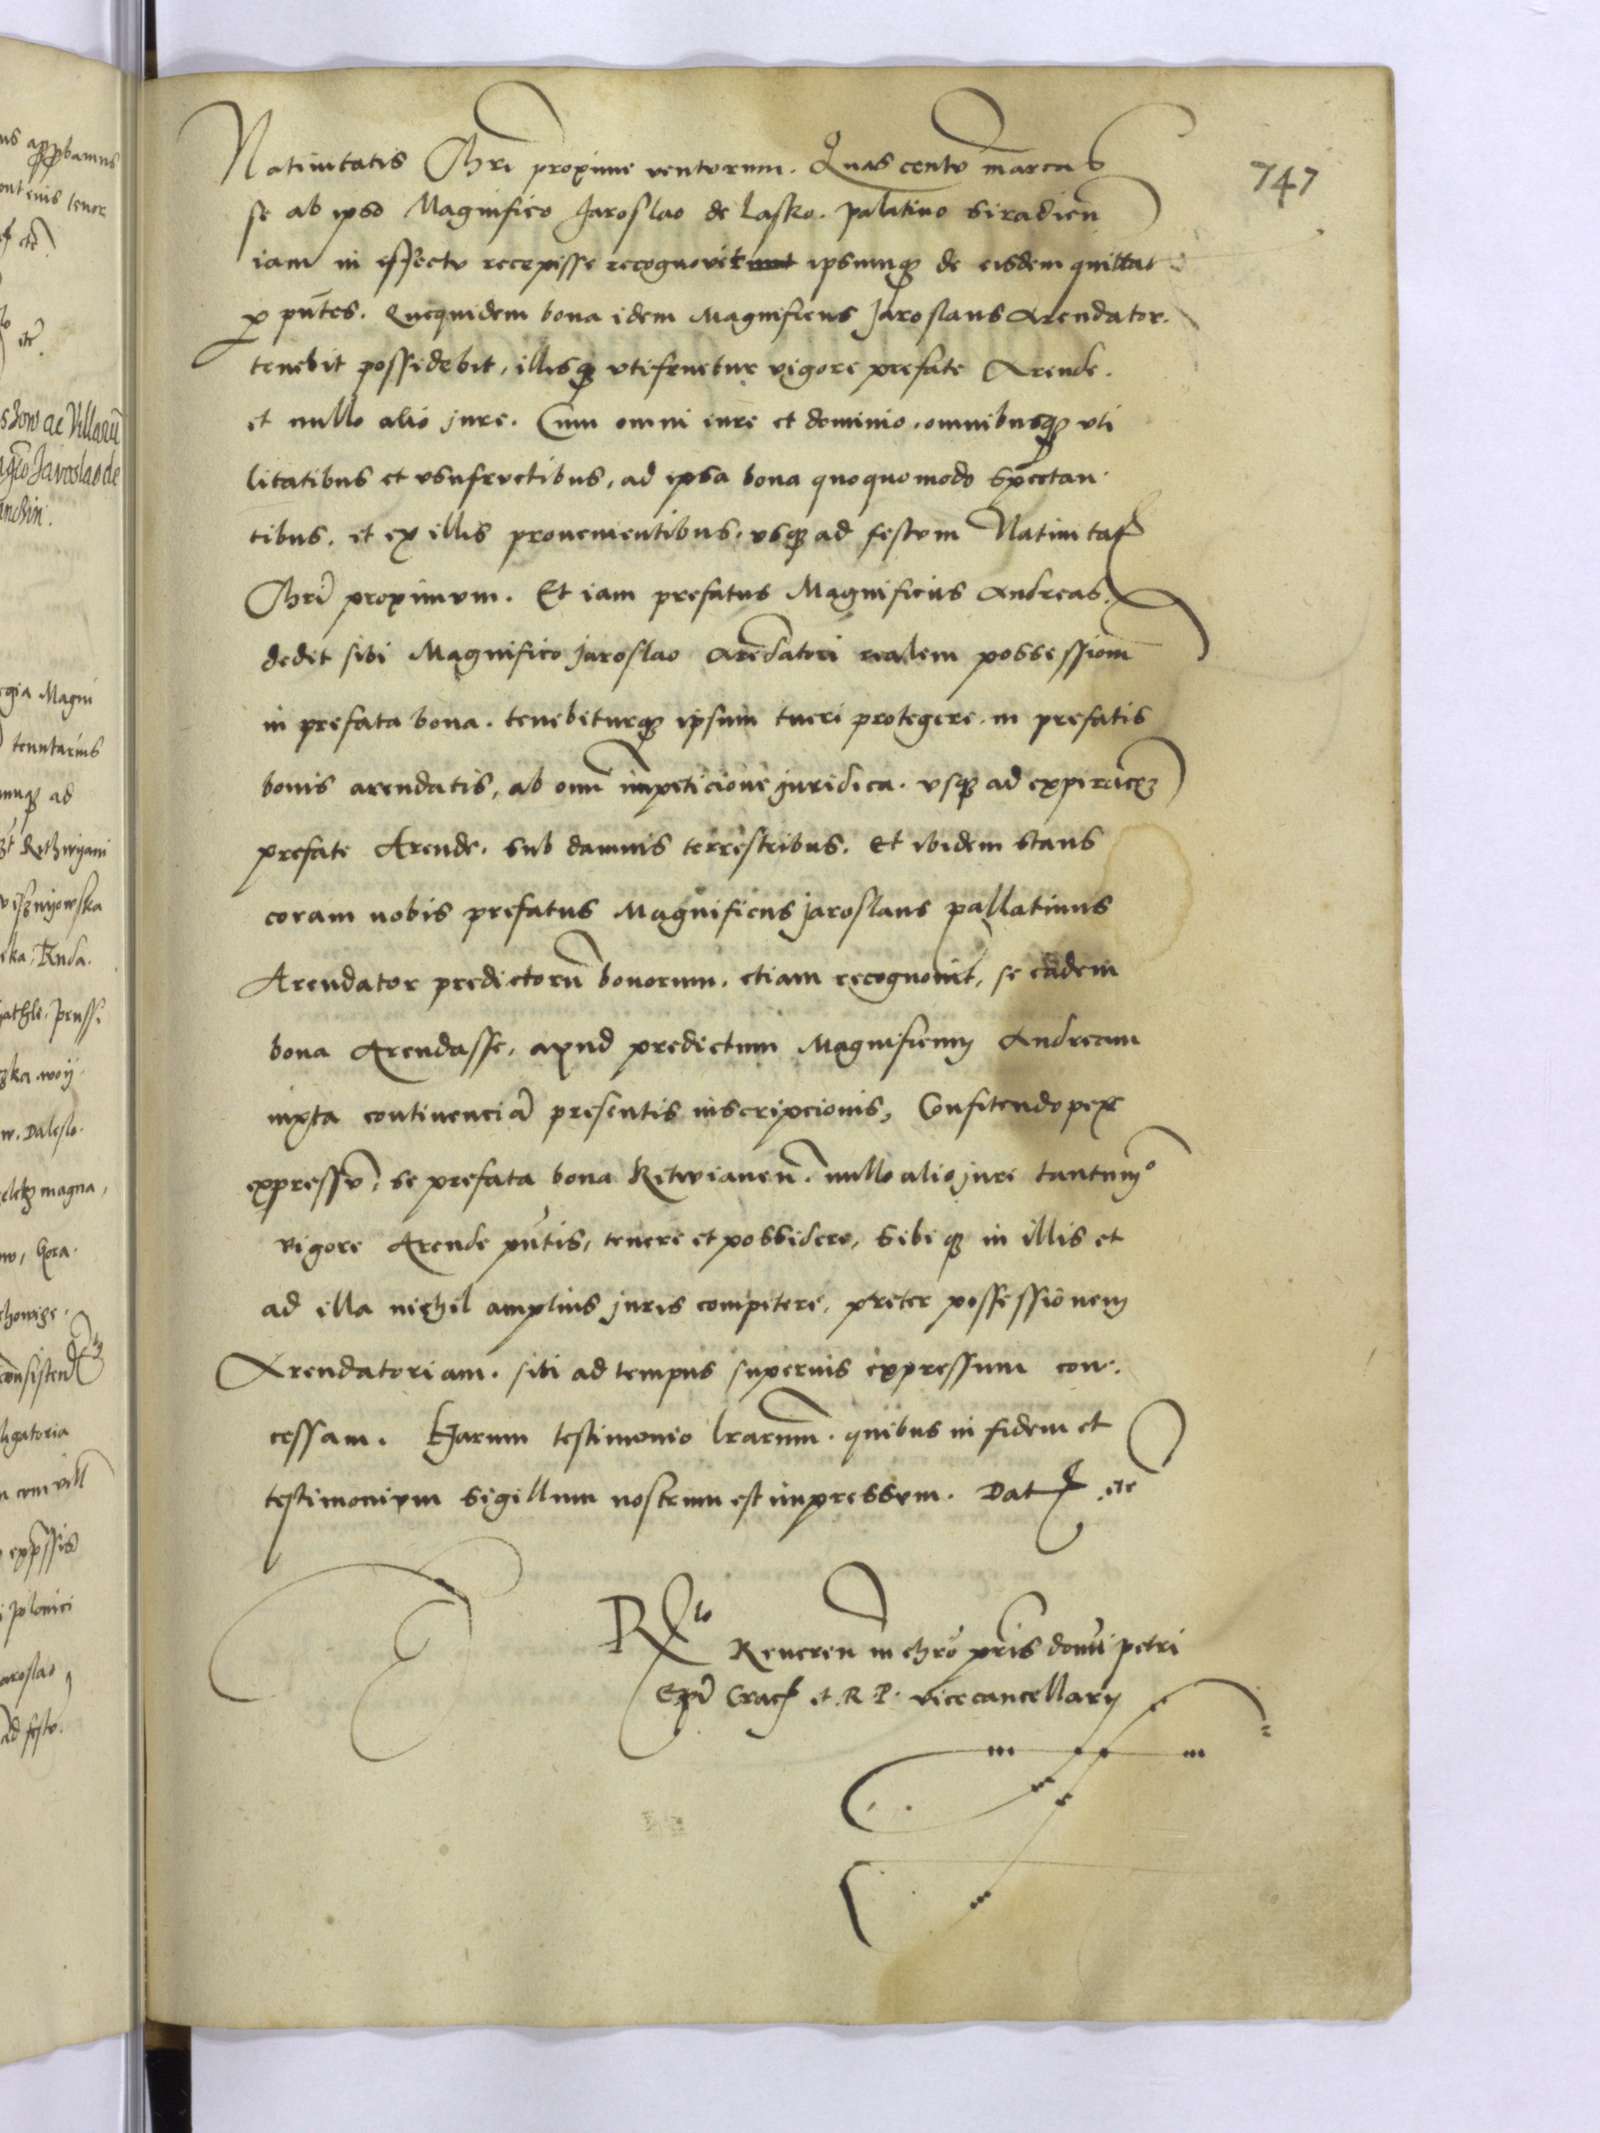 747
Natiuitatis Chri proxime ventorum. Quas centu marcas
se ab ipso Magnifico Jaroslao de Lasko. palatino Siradien
iam in effectu recepisse recognovit ipsumq de eisdem quittat
p pntes. Quequidem bona idem Magnificus Jaroslaus Arendator.
tenebit possidebit, illisq vtifruetur vigore prefate Arende.
et nullo alio jure. Cum omni iure et dominio, omnibusq vti
litatibus et vsufructibus, ad ipsa bona quoquomodo spectan
tibus, et ex illis prouenientibus, vsq ad festum Natiuitat
Chri proximum. Et iam prefatus Magnificus Andreas
dedit sibi Magnifico Jaroslao Arendatori realem possessiom
in prefata bona. tenebiturq ipsum tueri protegere in prefatis
bonis arendatis, ab omi impeticione juridica. vsq ad expiracoez
prefate Arende. sub damnis terrestribus. Et ibidem stans
coram nobis prefatus Magnificus Jaroslaus pallatinus
Arendator predictoru bonorum, etiam recognouit, se eadem
bona Arendasse, apud predictum Magnificum Andream
iuxta continencia presentis inscripcionis, Confitendo per
expressu, se prefata bona Ritwianen. nullo alio jure tantumo
vigore Arende pntis, tenere et possidere, sibi q in illis et
ad illa nichil amplius juris competere, preter possessionem
Arendatoriam. sibi ad tempus superius expressum con
cessam. Harum testimonio lrarum. quibus in fidem et
testimonium sigillum nostrum est impressum. Dat etc
Rto
Reueren in chro pris domi petri
Epi Crac et R. P. vicecancellarij